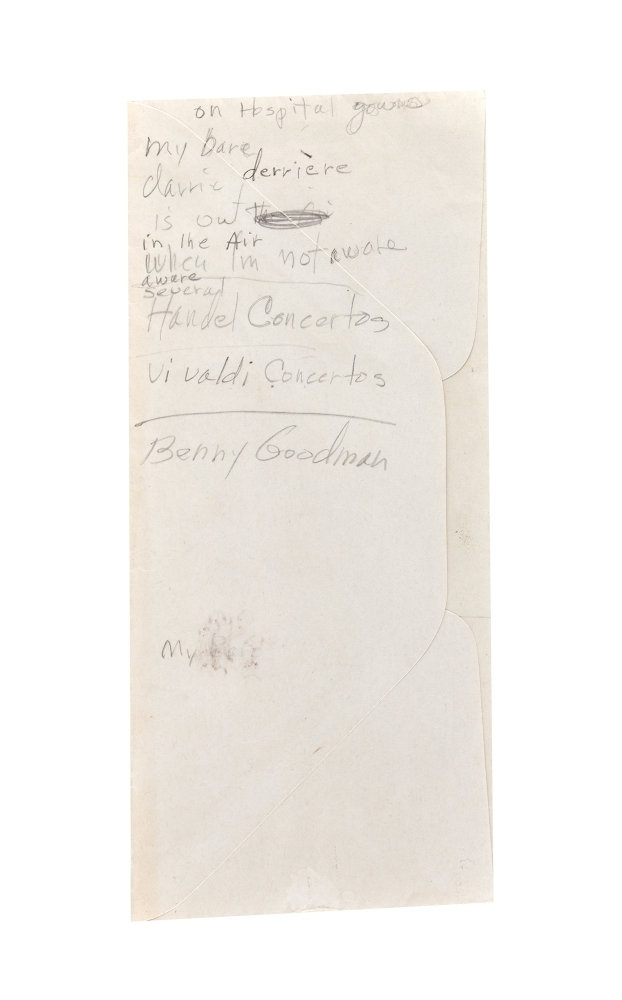 on Hospital gowns
my Bare
derrière
is out
in the Air
when Im not awate
aware
several
Handel Concertos
Vivaldi Concertos
Benny Goodman
My